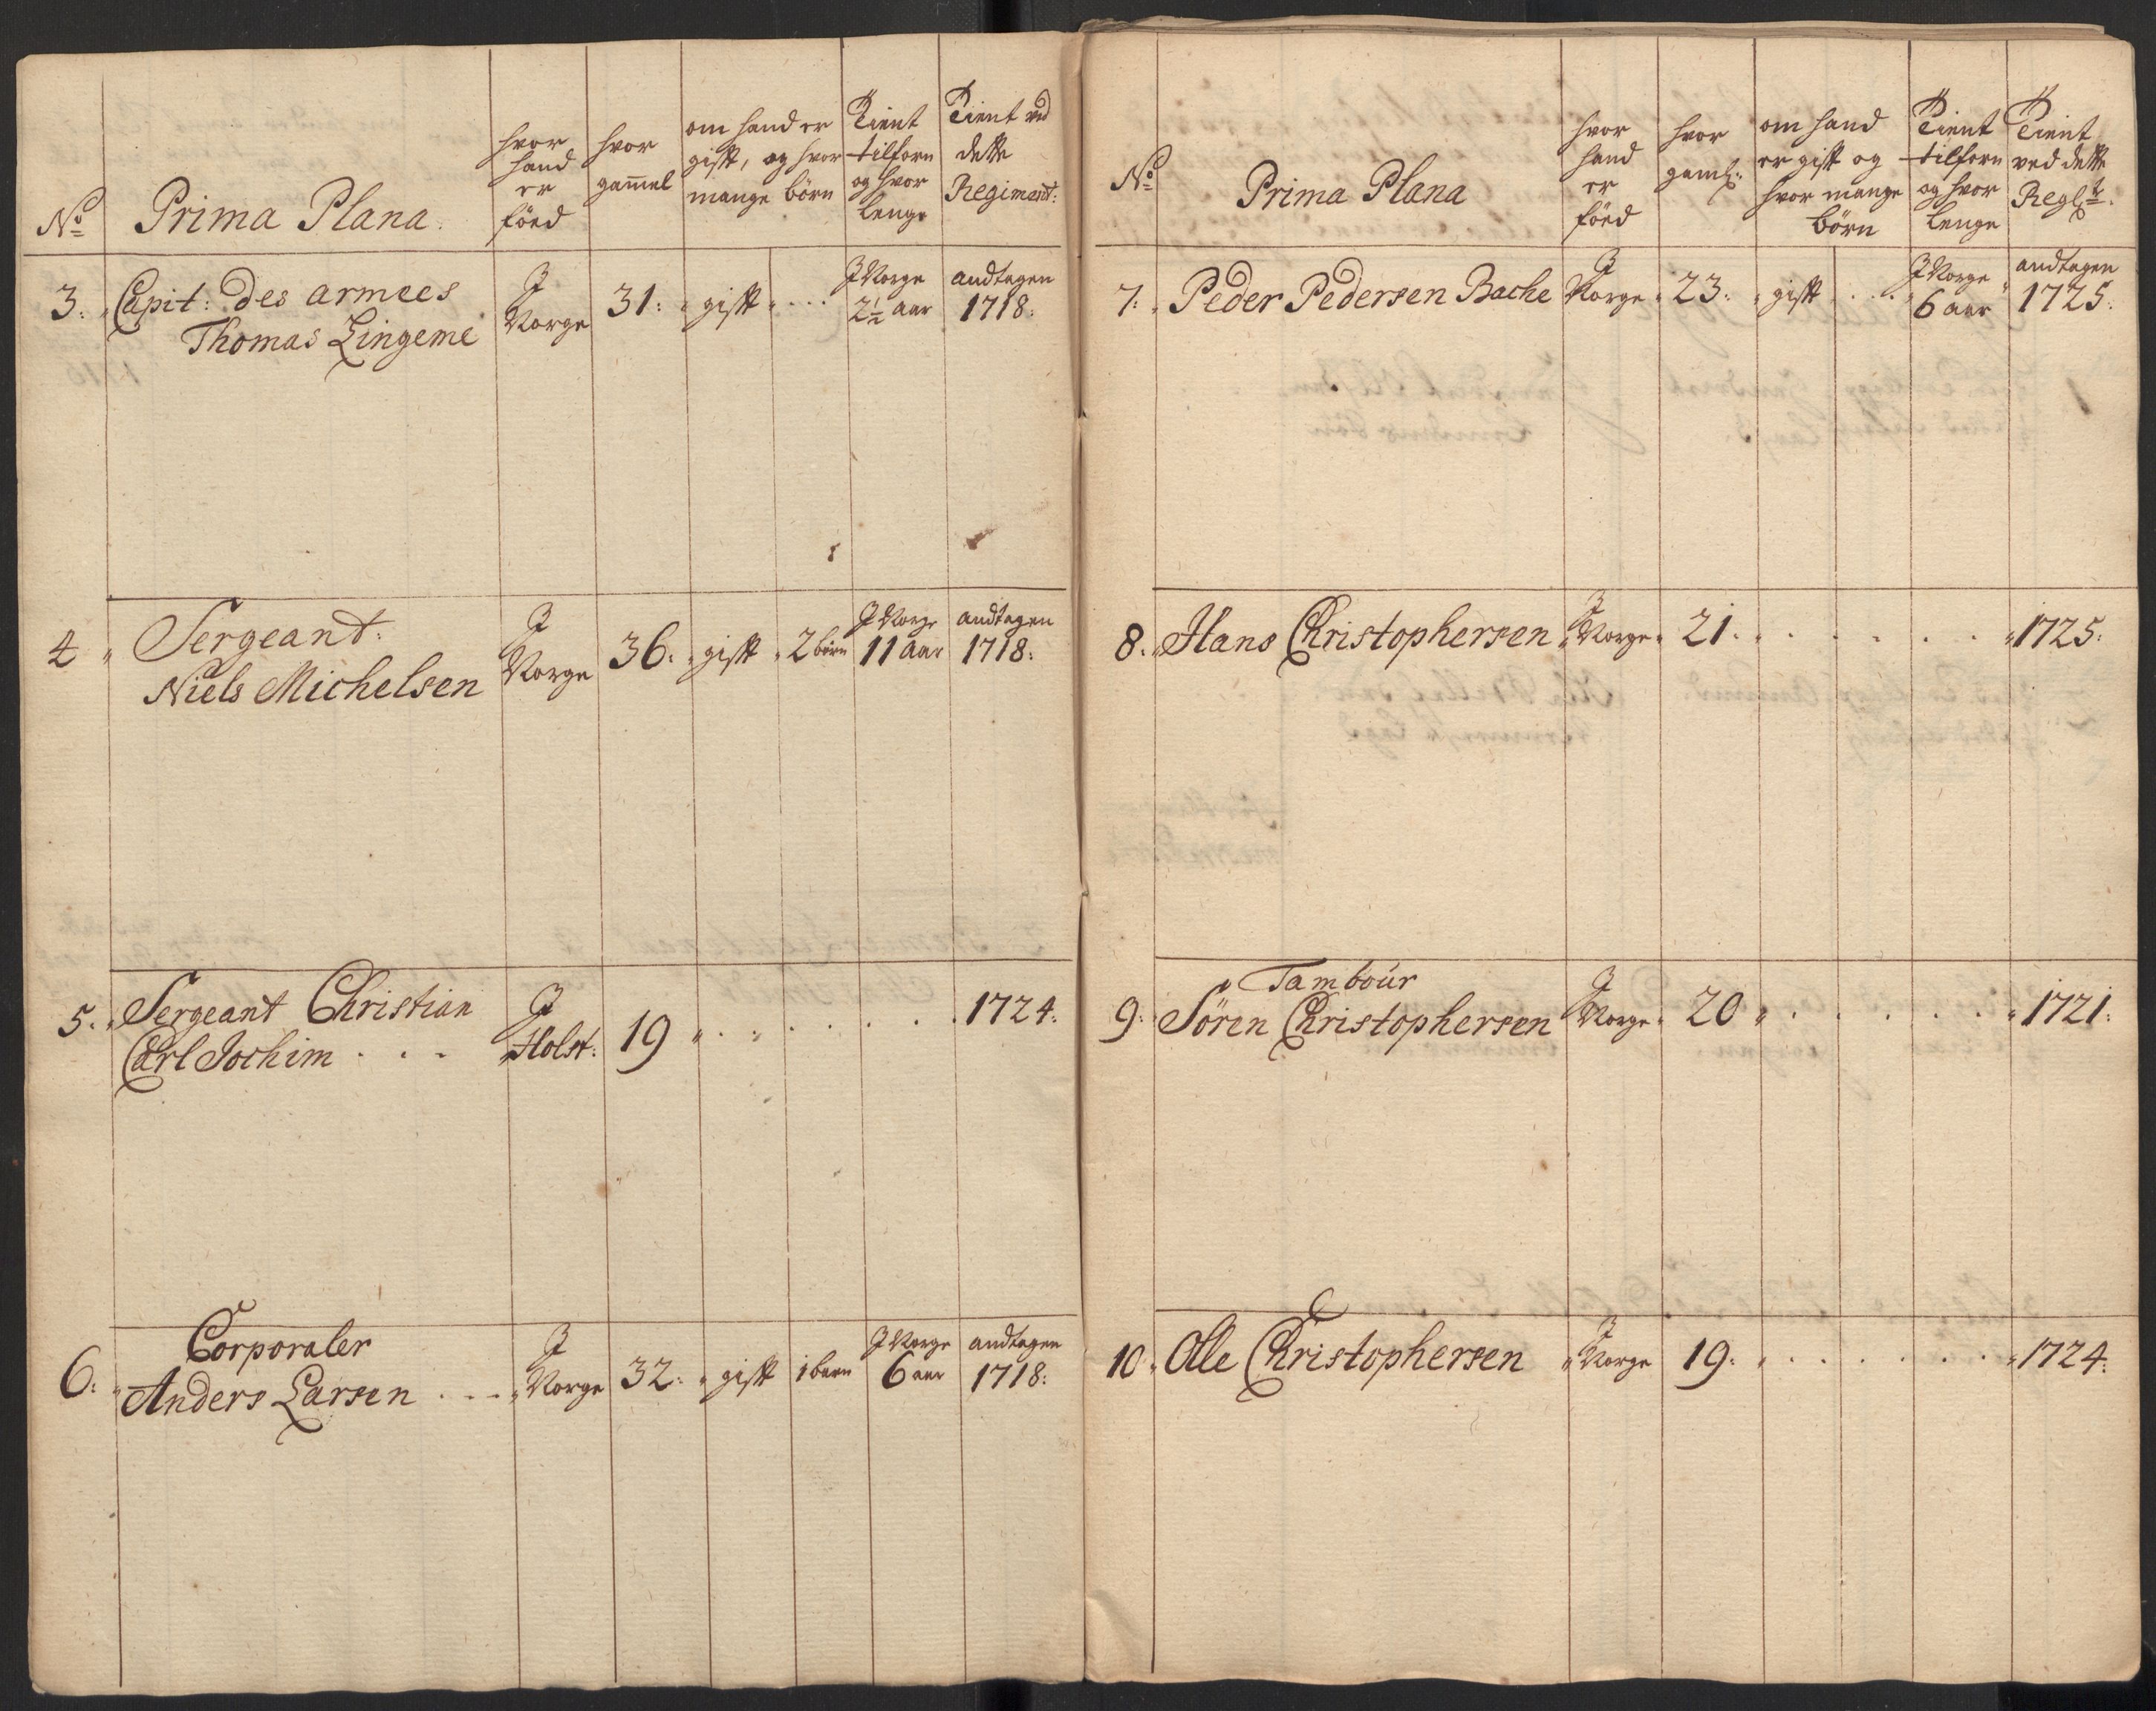 No
Prima Plana.
hvor
hand
er
föed
hvor
gam̄el
om hand er
gift, og hvor
mange börn
Tient
tilforn
og hvor
lenge
Tient ved
dette
Regiment:
3. Capit: des armees
Thomas Lingeme
J
Norge
31:
gift
J Norge
2½ aar
andtagen
1718:
4 Sergeant:
Niels Michelsen
J
Norge
36:
gift
2 börn
J Norge
11 aar
andtagen
1718:
5. Sergeant Christian
Carl Jochim . . .
J
Holst:
19
1724:
6: Corporaler
Anders Larsen . . .
J
Norge
32:
gift
1 barn
J Norge
6 aar
andtagen
1718:
No
Prima Plana
hvor
hand
er
föed
hvor
gaml:
om hand
er gift og
hvor mange
börn
Tient
tilforn
og hvor
lenge
Tient
ved dette
Regte.
7: Peder Pedersen Bache
J
Norge
23:
gift
J Norge
6 aar
andtagen
1725:
8. Hans Christophersen
J
Norge
21.
1725:
9: Tambour
Sören Christophersen
J
Norge
20
1721:
10. Olle Christophersen
J
Norge
19:
1724: